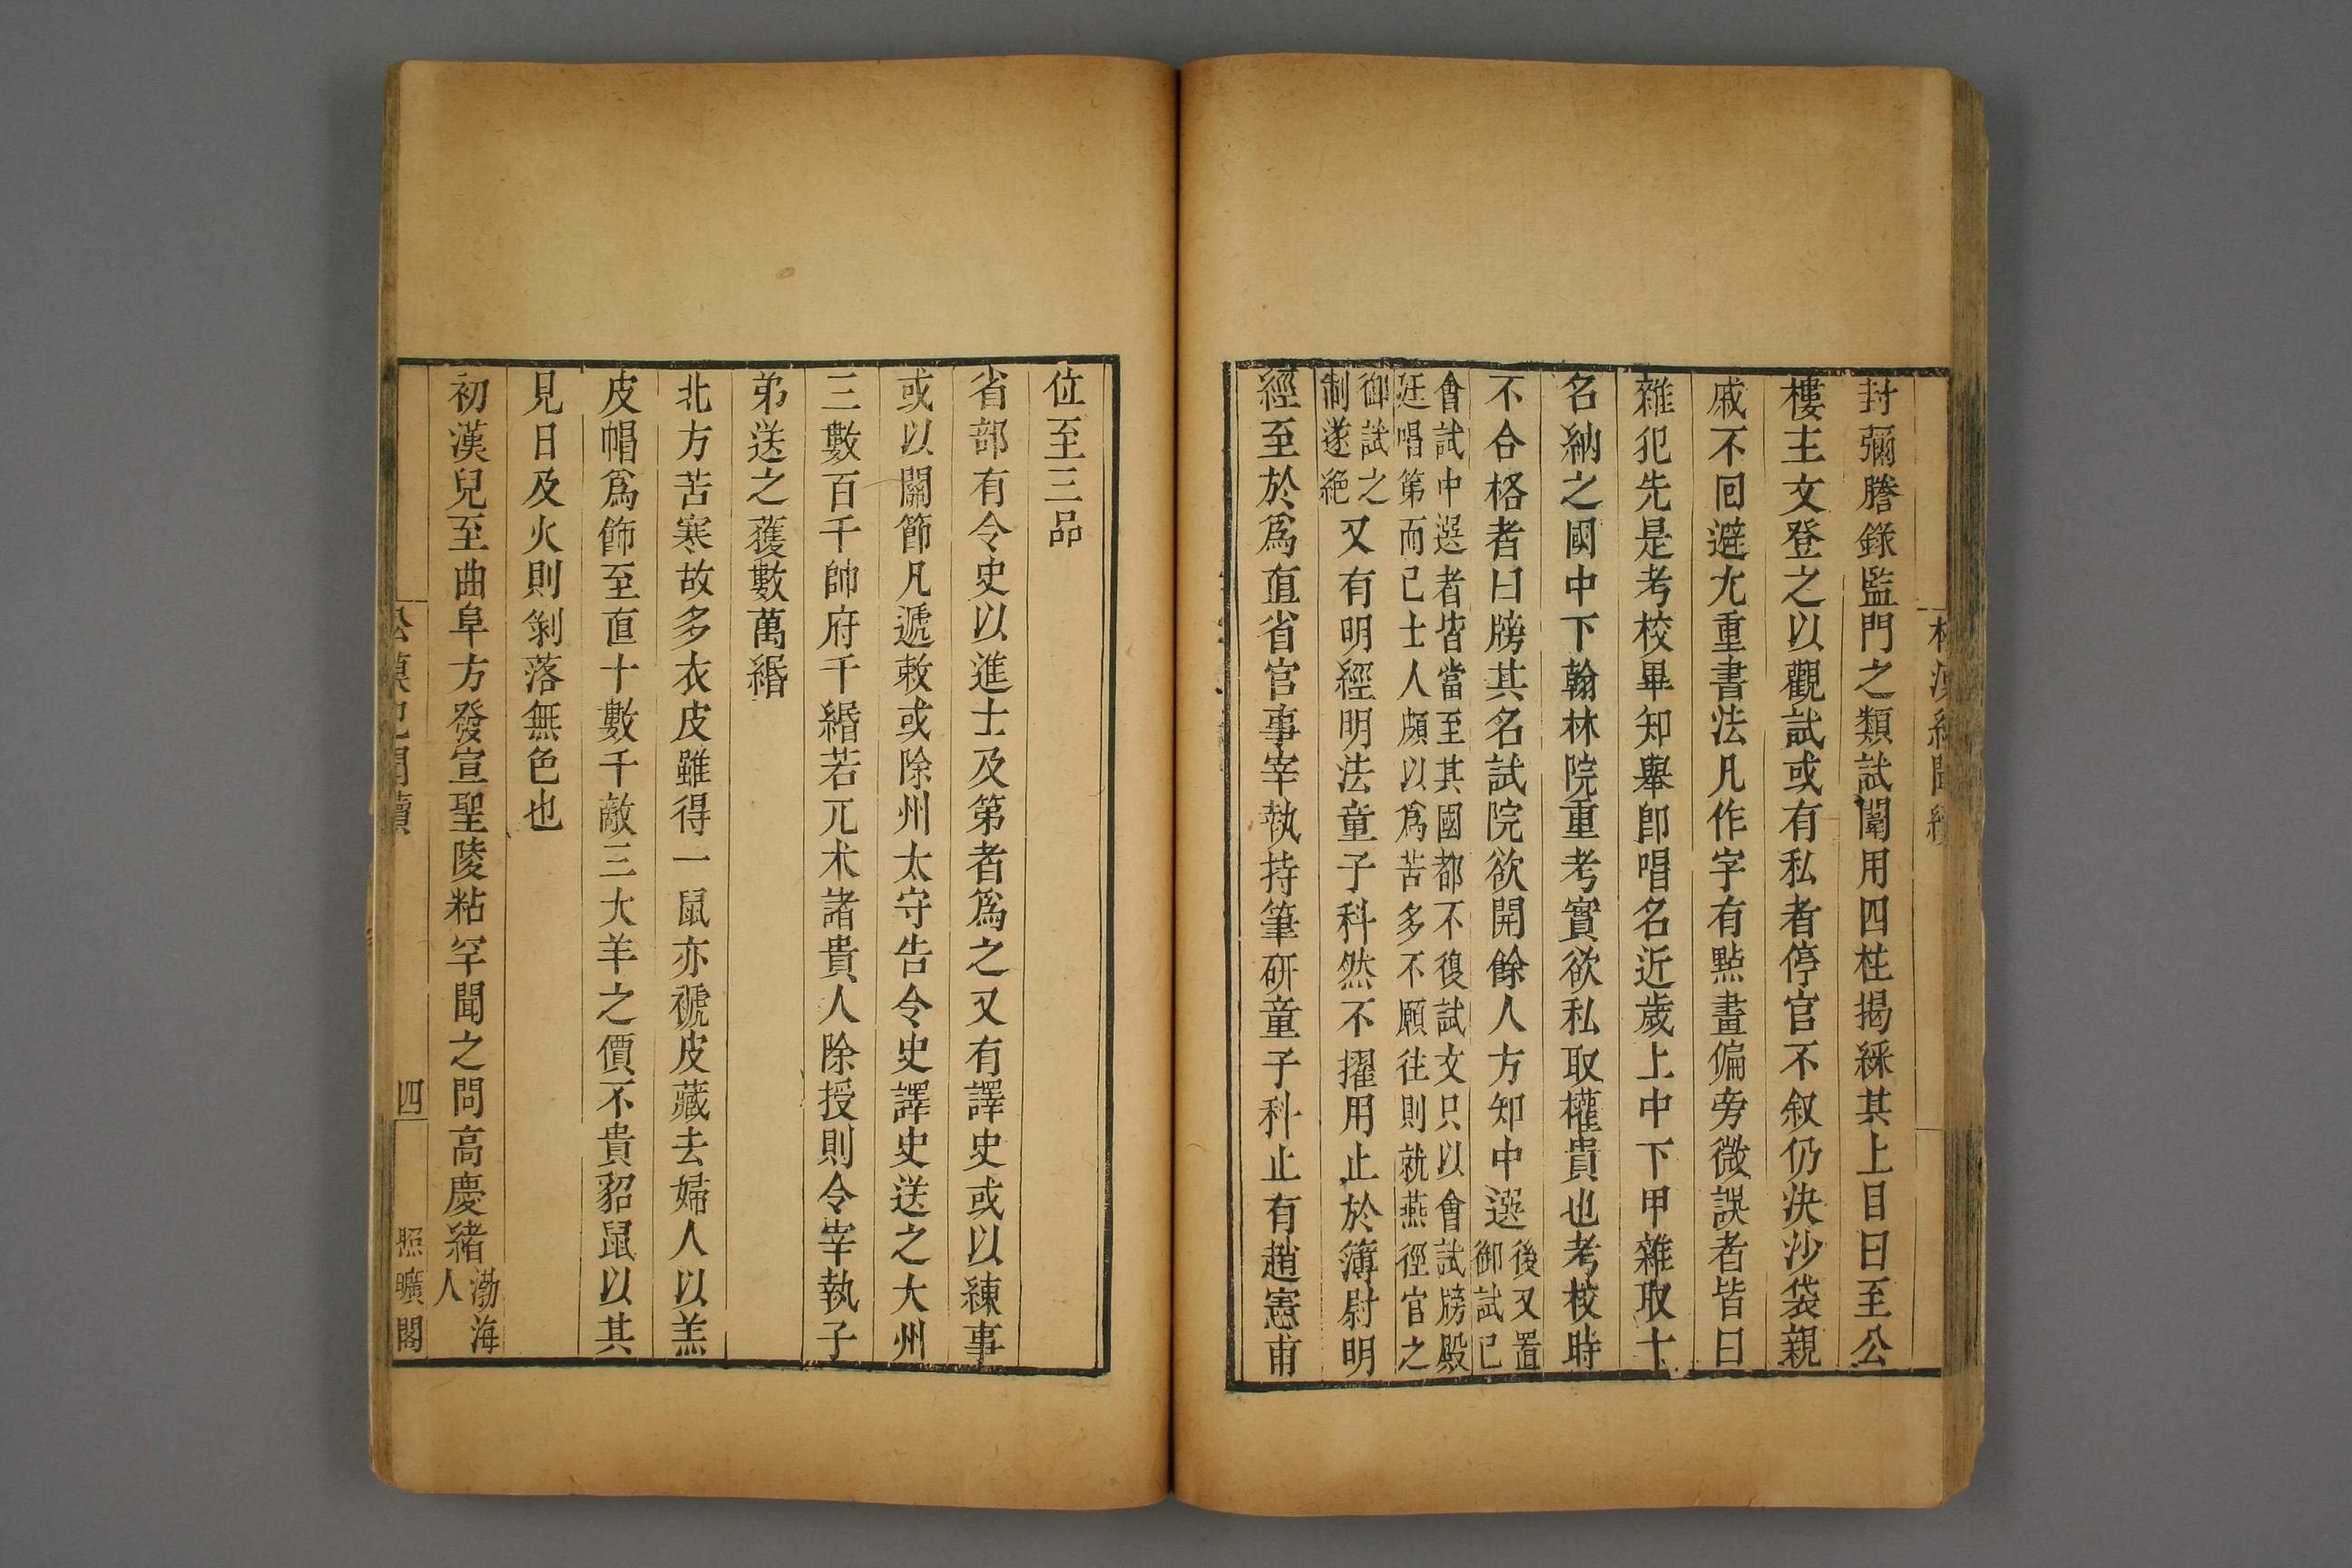 封彌謄錄監門之類試闈用四柱揭綵其上目曰至公
樓主文登之以觀試或有私者停官不叙仍決沙袋親
戚不回避尤重書法凡作字有點畫偏旁微誤者皆曰
雜犯先是考校畢知舉卽唱名近歲上中下甲雜取十
名納之國中下翰林院重考實欲私取權貴也考校時
不合格者曰牓其名試院欲開餘人方知中選後又置御試已
會試中選者皆當至其國都不復試文只以會試牓殿
廷唱第而已士人頗以爲苦多不願往則就燕徑官之
御試之制遂絕又有明經明法童子科然不擢用止於簿尉明
經至於爲直省官事宰執持筆研童子科止有趙憲甫
位至三品
省部有令史以進士及第者爲之又有譯史或以練事
或以關節凡遞敕或除州太守告令史譯史送之大州
三數百千帥府千緡若兀朮諸貴人除授則令宰執子
弟送之獲數萬緡
北方苦寒故多衣皮雖得一鼠亦褫皮藏去婦人以羔
皮帽爲飾至直十數千敵三大羊之價不貴貂鼠以其
見日及火則剝落無色也
初漢兒至曲阜方發宣聖陵粘罕聞之問高慶緒渤海人
四
照曠閣